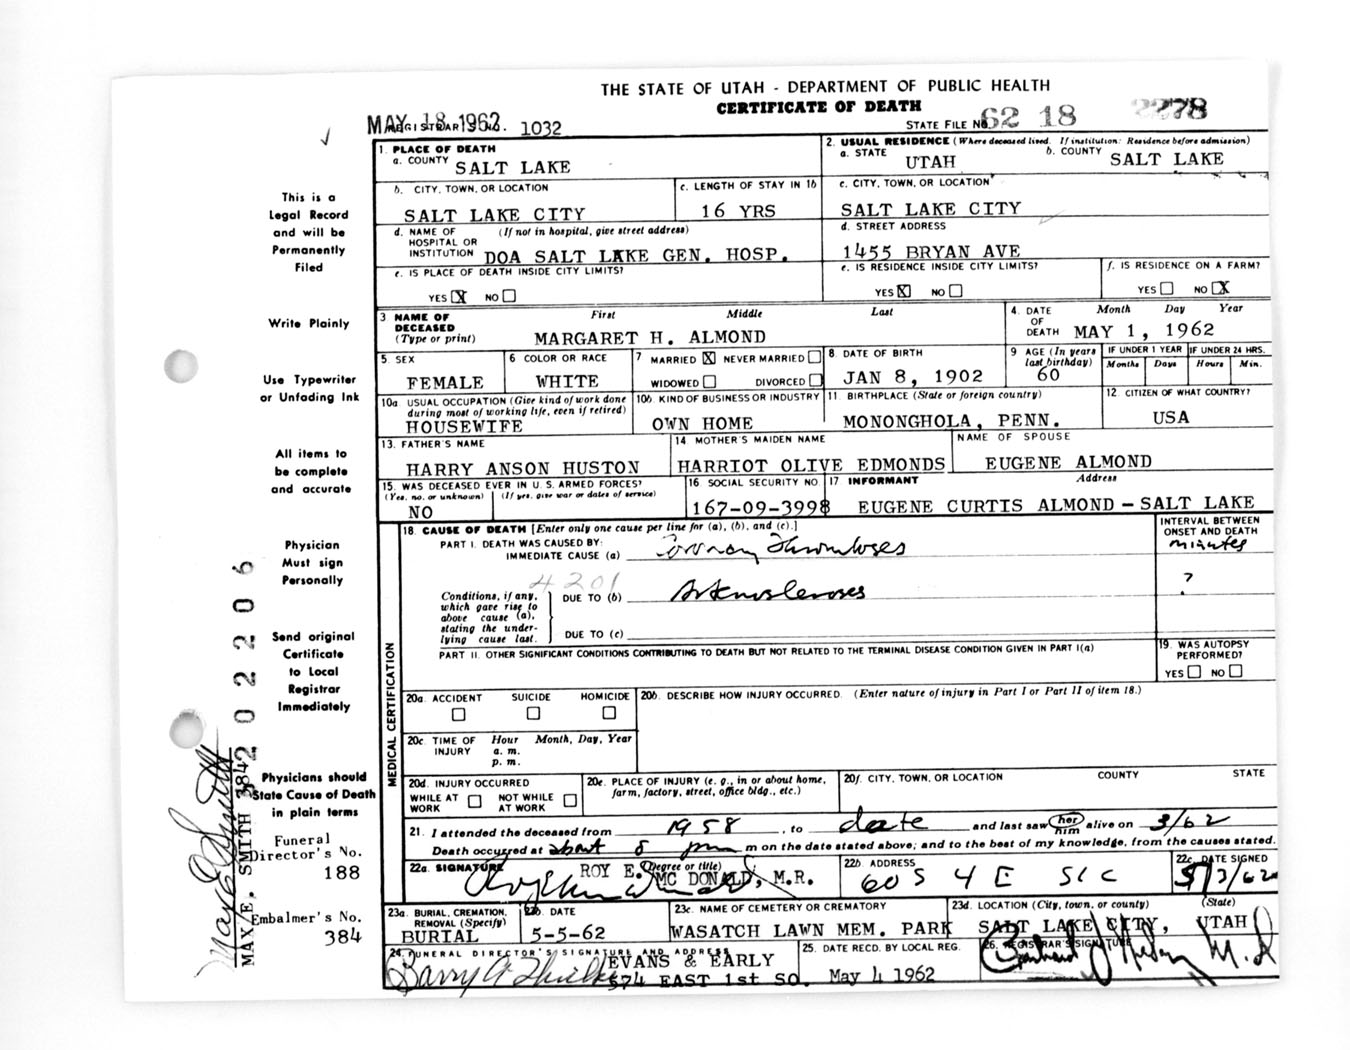 THE STATE OF UTAH - DEPARTMENT OF PUBLIC HEALTH
CERTIFICATE OF DEATH
MAY 18 1962
REGISTRAR'S NO. 1032
STATE FILE NO. 62 18 2278
1. PLACE OF DEATH
a. COUNTY SALT LAKE
2. USUAL RESIDENCE (Where deceased lived. If institution: Residence before admission)
a. STATE UTAH b. COUNTY SALT LAKE
b. CITY, TOWN, OR LOCATION
SALT LAKE CITY
c. LENGTH OF STAY IN 1b
16 YRS
c. CITY, TOWN, OR LOCATION
SALT LAKE CITY
d. NAME OF HOSPITAL OR INSTITUTION (If not in hospital, give street address)
DOA SALT LAKE GEN. HOSP.
d. STREET ADDRESS
1455 BRYAN AVE
e. IS PLACE OF DEATH INSIDE CITY LIMITS?
YES X NO
e. IS RESIDENCE INSIDE CITY LIMITS?
YES X NO
f. IS RESIDENCE ON A FARM?
YES NO X
3 NAME OF DECEASED (Type or print)
First Middle Last
MARGARET H. ALMOND
4. DATE OF DEATH
Month Day Year
MAY 1, 1962
5. SEX
FEMALE
6 COLOR OR RACE
WHITE
7 MARRIED X NEVER MARRIED
WIDOWED DIVORCED
8. DATE OF BIRTH
JAN 8, 1902
9 AGE (In years last birthday)
60
IF UNDER 1 YEAR
Months Days
IF UNDER 24 HRS.
Hours Min.
10a. USUAL OCCUPATION (Give kind of work done during most of working life, even if retired)
HOUSEWIFE
10b. KIND OF BUSINESS OR INDUSTRY
OWN HOME
11. BIRTHPLACE (State or foreign country)
MONONGHOLA, PENN.
12 CITIZEN OF WHAT COUNTRY?
USA
13. FATHER'S NAME
HARRY ANSON HUSTON
14 MOTHER'S MAIDEN NAME
HARRIOT OLIVE EDMONDS
NAME OF SPOUSE
EUGENE ALMOND
15. WAS DECEASED EVER IN U.S. ARMED FORCES?
(Yes, no, or unknown) (If yes, give war or dates of service)
NO
16 SOCIAL SECURITY NO.
167-09-3998
17 INFORMANT Address
EUGENE CURTIS ALMOND - SALT LAKE
MEDICAL CERTIFICATION
18. CAUSE OF DEATH [Enter only one cause per line for (a), (b), and (c).]
INTERVAL BETWEEN ONSET AND DEATH
PART I. DEATH WAS CAUSED BY:
IMMEDIATE CAUSE (a) Coronary Thromboses
minutes
4201
Conditions, if any, which gave rise to above cause (a), stating the underlying cause last.
DUE TO (b) Arterioscleroses
?
DUE TO (c)
PART II. OTHER SIGNIFICANT CONDITIONS CONTRIBUTING TO DEATH BUT NOT RELATED TO THE TERMINAL DISEASE CONDITION GIVEN IN PART I(a)
19. WAS AUTOPSY PERFORMED?
YES NO
20a. ACCIDENT SUICIDE HOMICIDE
20b. DESCRIBE HOW INJURY OCCURRED. (Enter nature of injury in Part I or Part II of item 18.)
20c. TIME OF INJURY
Hour Month, Day, Year
a. m.
p. m.
20d. INJURY OCCURRED
WHILE AT WORK NOT WHILE AT WORK
20e. PLACE OF INJURY (e. g., in or about home, farm, factory, street, office bldg., etc.)
20f. CITY, TOWN, OR LOCATION COUNTY STATE
21. I attended the deceased from 1958, to date and last saw her him alive on 3/62
Death occurred at about 8 pm m on the date stated above; and to the best of my knowledge, from the causes stated.
22a. SIGNATURE (Degree or title)
ROY E. MC DONALD, M.R.
22b. ADDRESS
60 S 4 E SLC
22c. DATE SIGNED
5/3/62
23a. BURIAL, CREMATION, REMOVAL (Specify)
BURIAL
23b. DATE
5-5-62
23c. NAME OF CEMETERY OR CREMATORY
WASATCH LAWN MEM. PARK
23d. LOCATION (City, town, or county) (State)
SALT LAKE CITY, UTAH
24. FUNERAL DIRECTOR'S SIGNATURE AND ADDRESS
EVANS & EARLY
574 EAST 1st SO.
25. DATE RECD. BY LOCAL REG.
May 4 1962
26. REGISTRAR'S SIGNATURE
M.D
This is a
Legal Record
and will be
Permanently
Filed
Write Plainly
Use Typewriter
or Unfading Ink
All items to
be complete
and accurate
Physician
Must sign
Personally
Send original
Certificate
to Local
Registrar
Immediately
Physicians should
State Cause of Death
in plain terms
Funeral
Director's No.
188
Embalmer's No.
384
2022206
Max E Smith
MAX E. SMITH 384